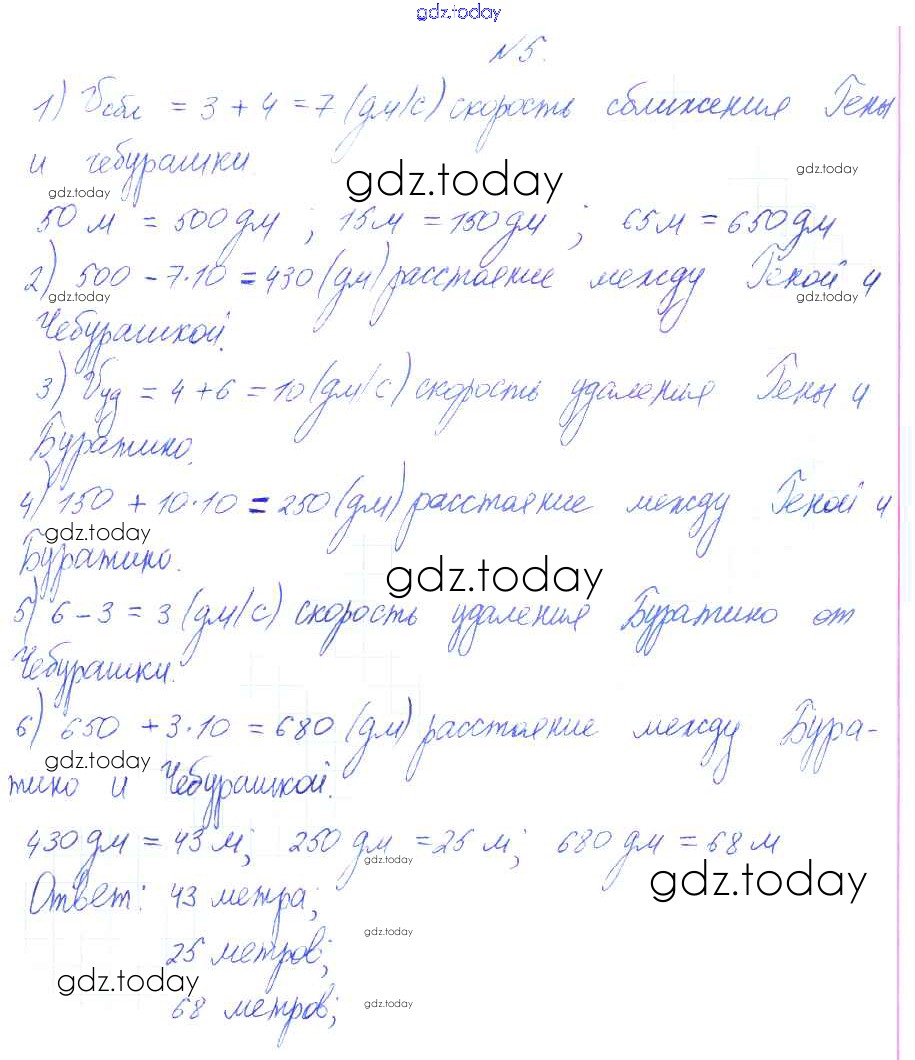 gdz.today
№5.
1) Vсбл = 3 + 4 = 7 (дм/с) скорость сближения Гены
и чебурашки.
gdz.today
gdz.today
gdz.today
50 м = 500 дм ; 15м = 150 дм ; 65м = 650 дм
2) 500 - 7·10 = 430 (дм) расстояние между Геной и
gdz.today
gdz.today
Чебурашкой.
3) Vуд = 4 + 6 = 10 (дм/с) скорость удаления Гены и
Буратино.
4) 150 + 10·10 = 250 (дм) расстояние между Геной и
gdz.today
Буратино.
gdz.today
5) 6 - 3 = 3 (дм/с) скорость удаления Буратино от
Чебурашки.
6) 650 + 3·10 = 680 (дм) расстояние между Бура-
gdz.today
тино и Чебурашкой.
430 дм = 43 м; 250 дм = 25 м; 680 дм = 68 м
gdz.today
gdz.today
Ответ: 43 метра;
gdz.today
25 метров;
gdz.today
68 метров;
gdz.today